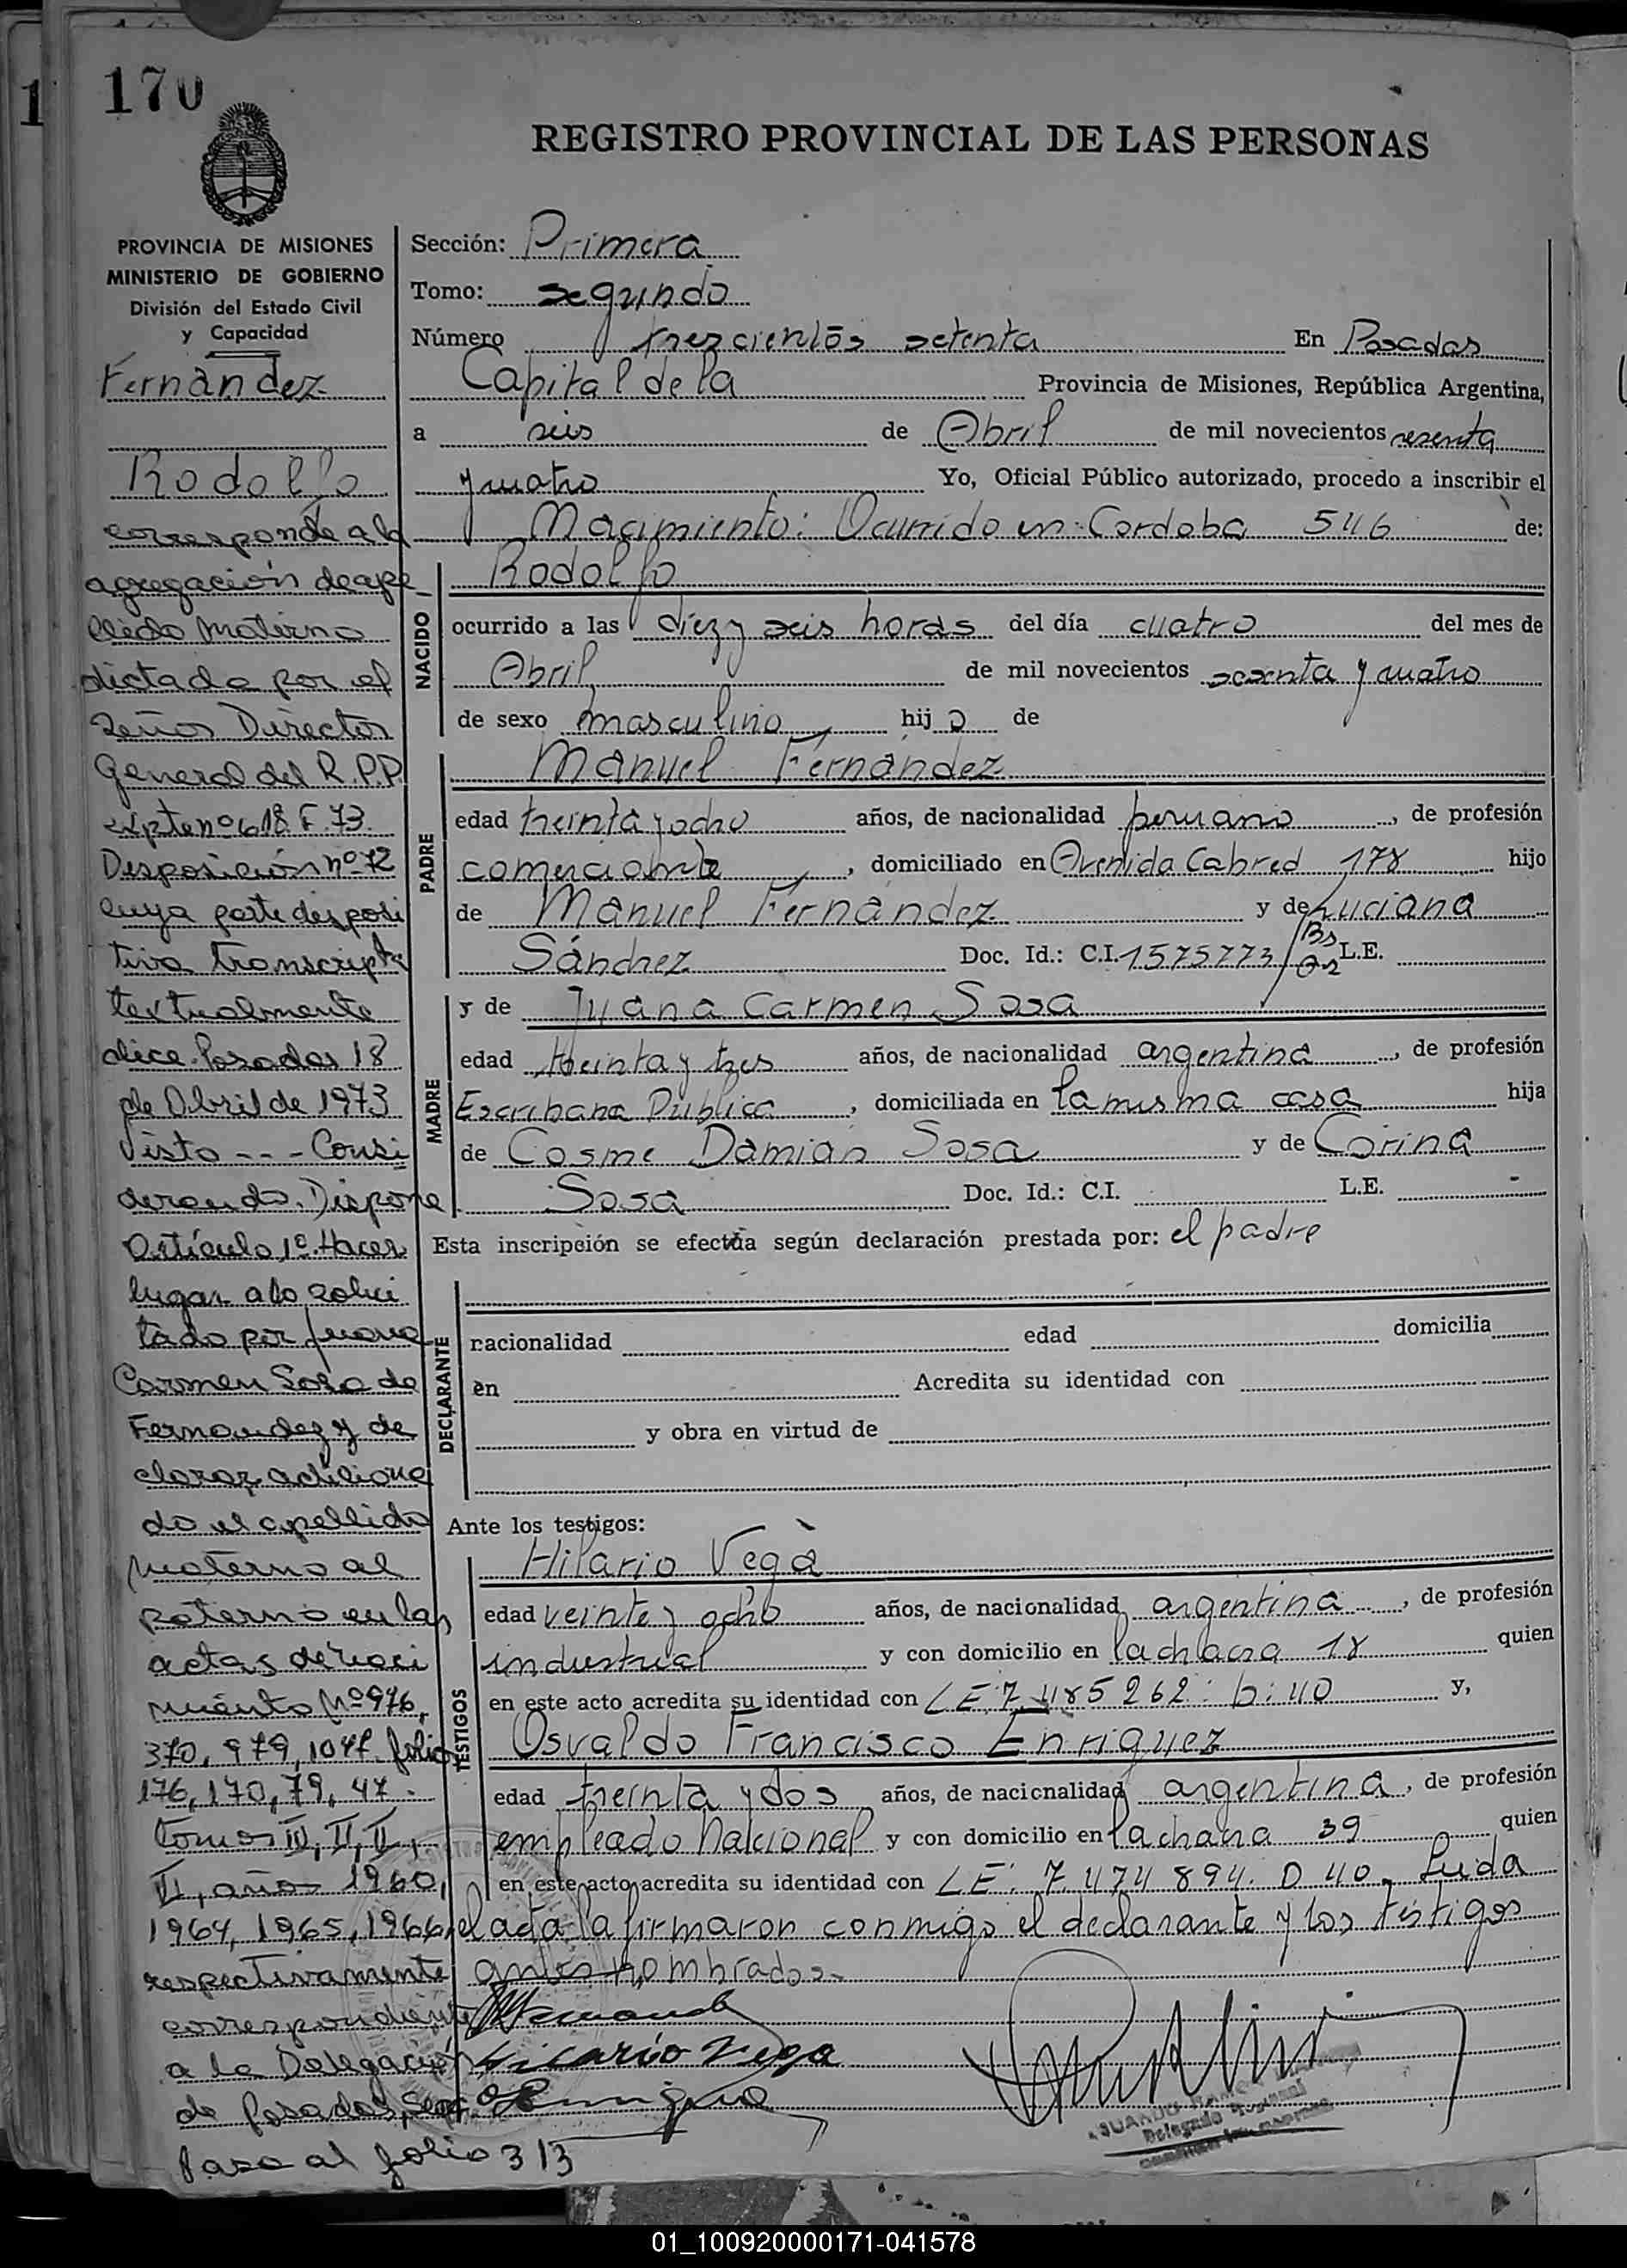 170
REGISTRO PROVINCIAL DE LAS PERSONAS
PROVINCIA DE MISIONES
MINISTERIO DE GOBIERNO
División del Estado Civil
y Capacidad
Fernández
Rodolfo
corresponde a la
agregación de ape
llido materno
dictada por el
Señor Director
General del R.P.P.
expte nº 618 F. 73.
Desposición nº 72
cuya parte desposi
tiva transcripta
textualmente
dice. Posadas 18
de Abril de 1973
Visto - - - Consi
derando. Dispone
Artículo 1º. Hacer
lugar a lo solici
tado por Juana
Carmen Sosa de
Fernandez y de
clarar adiciona
do el apellido
materno al
paterno en las
actas de naci
miento Nº 976,
370, 979, 1047 folio
176, 170, 79, 47.
tomos III, II, II,
VI, años 1960,
1964, 1965, 1966,
respectivamente
correspondiente
a la Delegación
de Posadas, Secc.
Pasa al folio 313
Sección: Primera
Tomo: segundo
Número trescientos setenta En Posadas
Capital de la Provincia de Misiones, República Argentina,
a seis de Abril de mil novecientos sesenta
y cuatro Yo, Oficial Público autorizado, procedo a inscribir el
Nacimiento: Ocurrido en: Cordoba 546 de:
NACIDO
Rodolfo
ocurrido a las diez y seis horas del día cuatro del mes de
Abril de mil novecientos sesenta y cuatro
de sexo masculino hijo de
PADRE
Manuel Fernández
edad treinta y ocho años, de nacionalidad peruano, de profesión
comerciante, domiciliado en Avenida Cabred 178 hijo
de Manuel Fernández y de Luciana
Sánchez Doc. Id.: C.I. 1575773/Bs As L.E.
MADRE
y de Juana Carmen Sosa
edad treinta y tres años, de nacionalidad argentina, de profesión
Escribana Pública, domiciliada en la misma casa hija
de Cosme Damian Sosa y de Corina
Sosa Doc. Id.: C.I. L.E.
Esta inscripción se efectúa según declaración prestada por: el padre
DECLARANTE
nacionalidad edad domicilia
en Acredita su identidad con
y obra en virtud de
Ante los testigos:
TESTIGOS
Hilario Vega
edad veinte y ocho años, de nacionalidad argentina, de profesión
industrial y con domicilio en la chacra 18 quien
en este acto acredita su identidad con LE: 7.485262: D: 40 y,
Osvaldo Francisco Enriquez
edad treinta y dos años, de nacionalidad argentina, de profesión
empleado Nacional y con domicilio en la chacra 39 quien
en este acto acredita su identidad con LE: 7.474894. D 40. Leida
el acta la firmaron conmigo el declarante y los testigos
antes nombrados.
Hilario Vega
Delegado
01_100920000171-041578